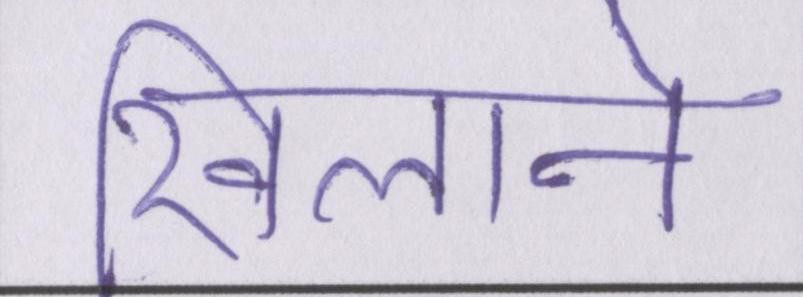 खिलाने